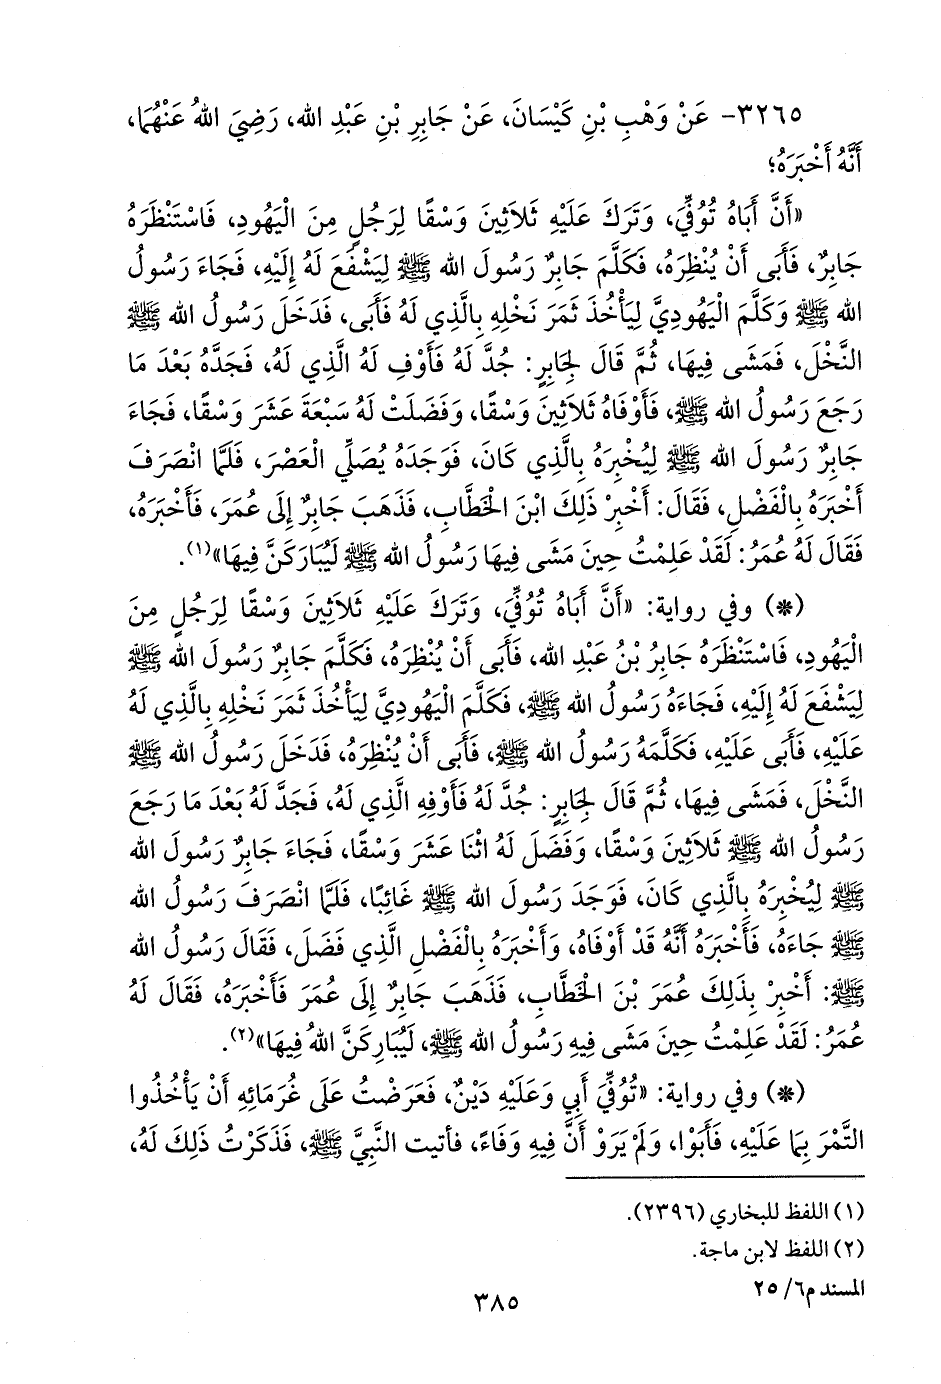 ٣٢٦٥- عَنْ وَهْبِ بْنِ كَيْسَانَ، عَنْ جَابِرِ بْنِ عَبْدِ الله، رَضِيَ اللهُ عَنْهُمَا،
أَنَّهُ أَخْبَرَهُ؛
«أَنَّ أَبَاهُ تُوُفِّيَ، وَتَرَكَ عَلَيْهِ ثَلَاثِينَ وَسْقًا لِرَجُلٍ مِنَ الْيَهُودِ، فَاسْتَنْظَرَهُ
جَابِرٌ، فَأَبَى أَنْ يُنْظِرَهُ، فَكَلَّمَ جَابِرٌ رَسُولَ الله ﷺ لِيَشْفَعَ لَهُ إِلَيْهِ، فَجَاءَ رَسُولُ
الله ﷺ وَكَلَّمَ الْيَهُودِيَّ لِيَأْخُذَ ثَمَرَ نَخْلِهِ بِالَّذِي لَهُ فَأَبَى، فَدَخَلَ رَسُولُ الله ﷺ
النَّخْلَ، فَمَشَى فِيهَا، ثُمَّ قَالَ لِجَابِرٍ: جُدَّ لَهُ فَأَوْفِ لَهُ الَّذِي لَهُ، فَجَدَّهُ بَعْدَ مَا
رَجَعَ رَسُولُ الله ﷺ، فَأَوْفَاهُ ثَلَاثِينَ وَسْقًا، وَفَضَلَتْ لَهُ سَبْعَةَ عَشَرَ وَسْقًا، فَجَاءَ
جَابِرٌ رَسُولَ الله ﷺ لِيُخْبِرَهُ بِالَّذِي كَانَ، فَوَجَدَهُ يُصَلِّي الْعَصْرَ، فَلَمَّا انْصَرَفَ
أَخْبَرَهُ بِالْفَضْلِ، فَقَالَ: أَخْبِرْ ذَلِكَ ابْنَ الْخَطَّابِ، فَذَهَبَ جَابِرٌ إِلَى عُمَرَ، فَأَخْبَرَهُ،
فَقَالَ لَهُ عُمَرُ: لَقَدْ عَلِمْتُ حِينَ مَشَى فِيهَا رَسُولُ الله ﷺ لَيُبَارَكَنَّ فِيهَا»(١).
(*) وفي رواية: «أَنَّ أَبَاهُ تُوُفِّيَ، وَتَرَكَ عَلَيْهِ ثَلَاثِينَ وَسْقًا لِرَجُلٍ مِنَ
الْيَهُودِ، فَاسْتَنْظَرَهُ جَابِرُ بْنُ عَبْدِ الله، فَأَبَى أَنْ يُنْظِرَهُ، فَكَلَّمَ جَابِرٌ رَسُولَ الله ﷺ
لِيَشْفَعَ لَهُ إِلَيْهِ، فَجَاءَهُ رَسُولُ الله ﷺ، فَكَلَّمَ الْيَهُودِيَّ لِيَأْخُذَ ثَمَرَ نَخْلِهِ بِالَّذِي لَهُ
عَلَيْهِ، فَأَبَى عَلَيْهِ، فَكَلَّمَهُ رَسُولُ الله ﷺ، فَأَبَى أَنْ يُنْظِرَهُ، فَدَخَلَ رَسُولُ الله ﷺ
النَّخْلَ، فَمَشَى فِيهَا، ثُمَّ قَالَ لِجَابِرٍ: جُدَّ لَهُ فَأَوْفِهِ الَّذِي لَهُ، فَجَدَّ لَهُ بَعْدَ مَا رَجَعَ
رَسُولُ الله ﷺ ثَلَاثِينَ وَسْقًا، وَفَضَلَ لَهُ اثْنَا عَشَرَ وَسْقًا، فَجَاءَ جَابِرٌ رَسُولَ الله
ﷺ لِيُخْبِرَهُ بِالَّذِي كَانَ، فَوَجَدَ رَسُولَ الله ﷺ غَائِبًا، فَلَمَّا انْصَرَفَ رَسُولُ الله
ﷺ جَاءَهُ، فَأَخْبَرَهُ أَنَّهُ قَدْ أَوْفَاهُ، وَأَخْبَرَهُ بِالْفَضْلِ الَّذِي فَضَلَ، فَقَالَ رَسُولُ الله
ﷺ: أَخْبِرْ بِذَلِكَ عُمَرَ بْنَ الْخَطَّابِ، فَذَهَبَ جَابِرٌ إِلَى عُمَرَ فَأَخْبَرَهُ، فَقَالَ لَهُ
عُمَرُ: لَقَدْ عَلِمْتُ حِينَ مَشَى فِيهِ رَسُولُ الله ﷺ، لَيُبَارِكَنَّ اللهُ فِيهَا»(٢).
(*) وفي رواية: «تُوُفِّيَ أَبِي وَعَلَيْهِ دَيْنٌ، فَعَرَضْتُ عَلَى غُرَمَائِهِ أَنْ يَأْخُذُوا
التَّمْرَ بِمَا عَلَيْهِ، فَأَبَوْا، وَلَمْ يَرَوْ أَنَّ فِيهِ وَفَاءً، فأتيت النَّبِيَّ ﷺ، فَذَكَرْتُ ذَلِكَ لَهُ،
(١) اللفظ للبخاري (٢٣٩٦).
(٢) اللفظ لابن ماجة.
المسند م٦/ ٢٥
٣٨٥